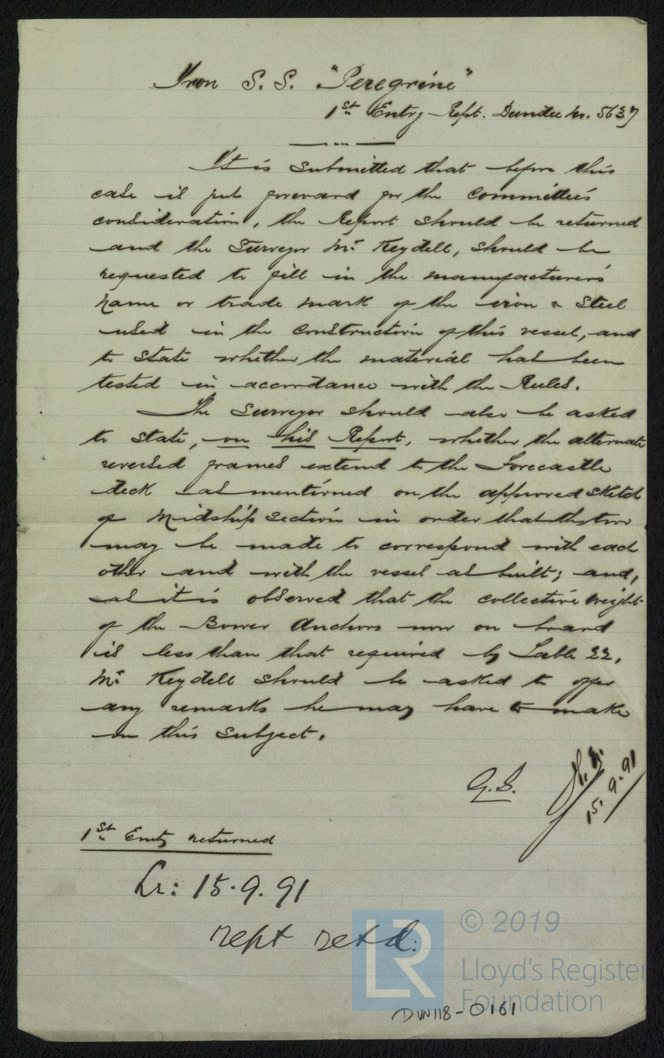 Iron S.S. "Peregrine"
1st Entry Rept. Dundee No. 5637
It is submitted that before this
case is put forward for the Committee's
consideration, the Report should be returned
and the Surveyor Mr. Keydell, should be
requested to fill in the manufacturer's
name or trade mark of the iron & steel
used in the construction of this vessel, and
to state whether the material has been
tested in accordance with the Rules.
The Surveyor should also be asked
to state, on his Report, whether the alternate
reversed frames extend to the Forecastle
deck as mentioned on the approved sketch
of Midship Section in order that the two
may be made to correspond with each
other and with the vessel as built; and,
as it is observed that the collective weight
of the Bower Anchors now on board
is less than that required by Table 22,
Mr. Keydell should be asked to offer
any remarks he may have to make
on this subject.
15.9.91
1st Entry returned
Lr: 15.9.91
rept retd:
LR
© 2019
Lloyd's Register
Foundation
DUN118-0161